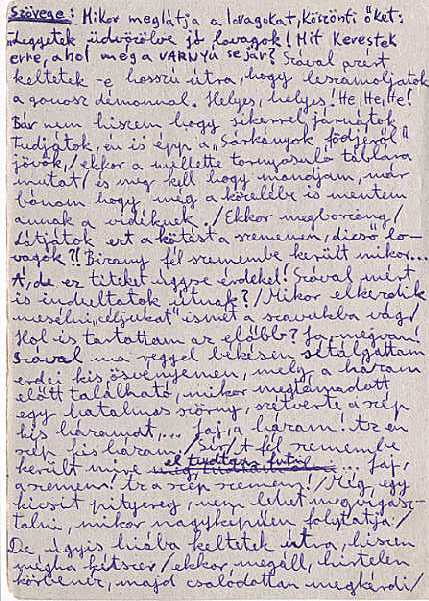 Szövege: Mikor meglátja a lovagokat, köszönti őket:
"Legyetek üdvözölve jó lovagok! Mit kerestek
erre, ahol még a VARNYÚ se jár? Szóval azért
keltetek -e hosszú útra, hogy leszámoljatok
a gonosz démonnal. Helyes, helyes! He, He, He!
Bár nem hiszem hogy sikerrel járnátok
Tudjátok, én is épp a "Sárkányok földjéről"
jövök, /ekkor a mellette tornyosuló táblára
mutat/ és meg kell hogy mondjam, már
bánom hogy még a közelébe is mentem
annak a vidéknek. /Ekkor megborzong/
Látjátok ezt a kötést a szememen, dicső lo-
vagok?! Bizony fél szemembe került mikor...
Á, de ez titeket úgyse érdekel! Szóval mért
is indultatok útnak? /Mikor elkezdik
mesélni "céljukat" ismét a szavukba vág/
Hol is tartottam az előbb? Ja, megvan!
Szóval ma reggel békésen sétálgattam
erdei kis ösvényemen, mely a házam
előtt található, mikor megtámadott
egy hatalmas szörny, szétverte a szép
kis házamat,... jaj, a házam! Az én
szép kis házam! /Sír/ t fél szemembe
került mire el tudtam futni ... jaj,
a szemem! Az a szép szemem! /Még egy
kicsit pityereg, nem lehet megvigasz-
talni, mikor nagyképűen folytatja:/
De úgyis hiába keltetek útra, hiszen
mégha kétszer /ekkor megáll, hirtelen
körbenéz, majd csalódottan megkérdi/